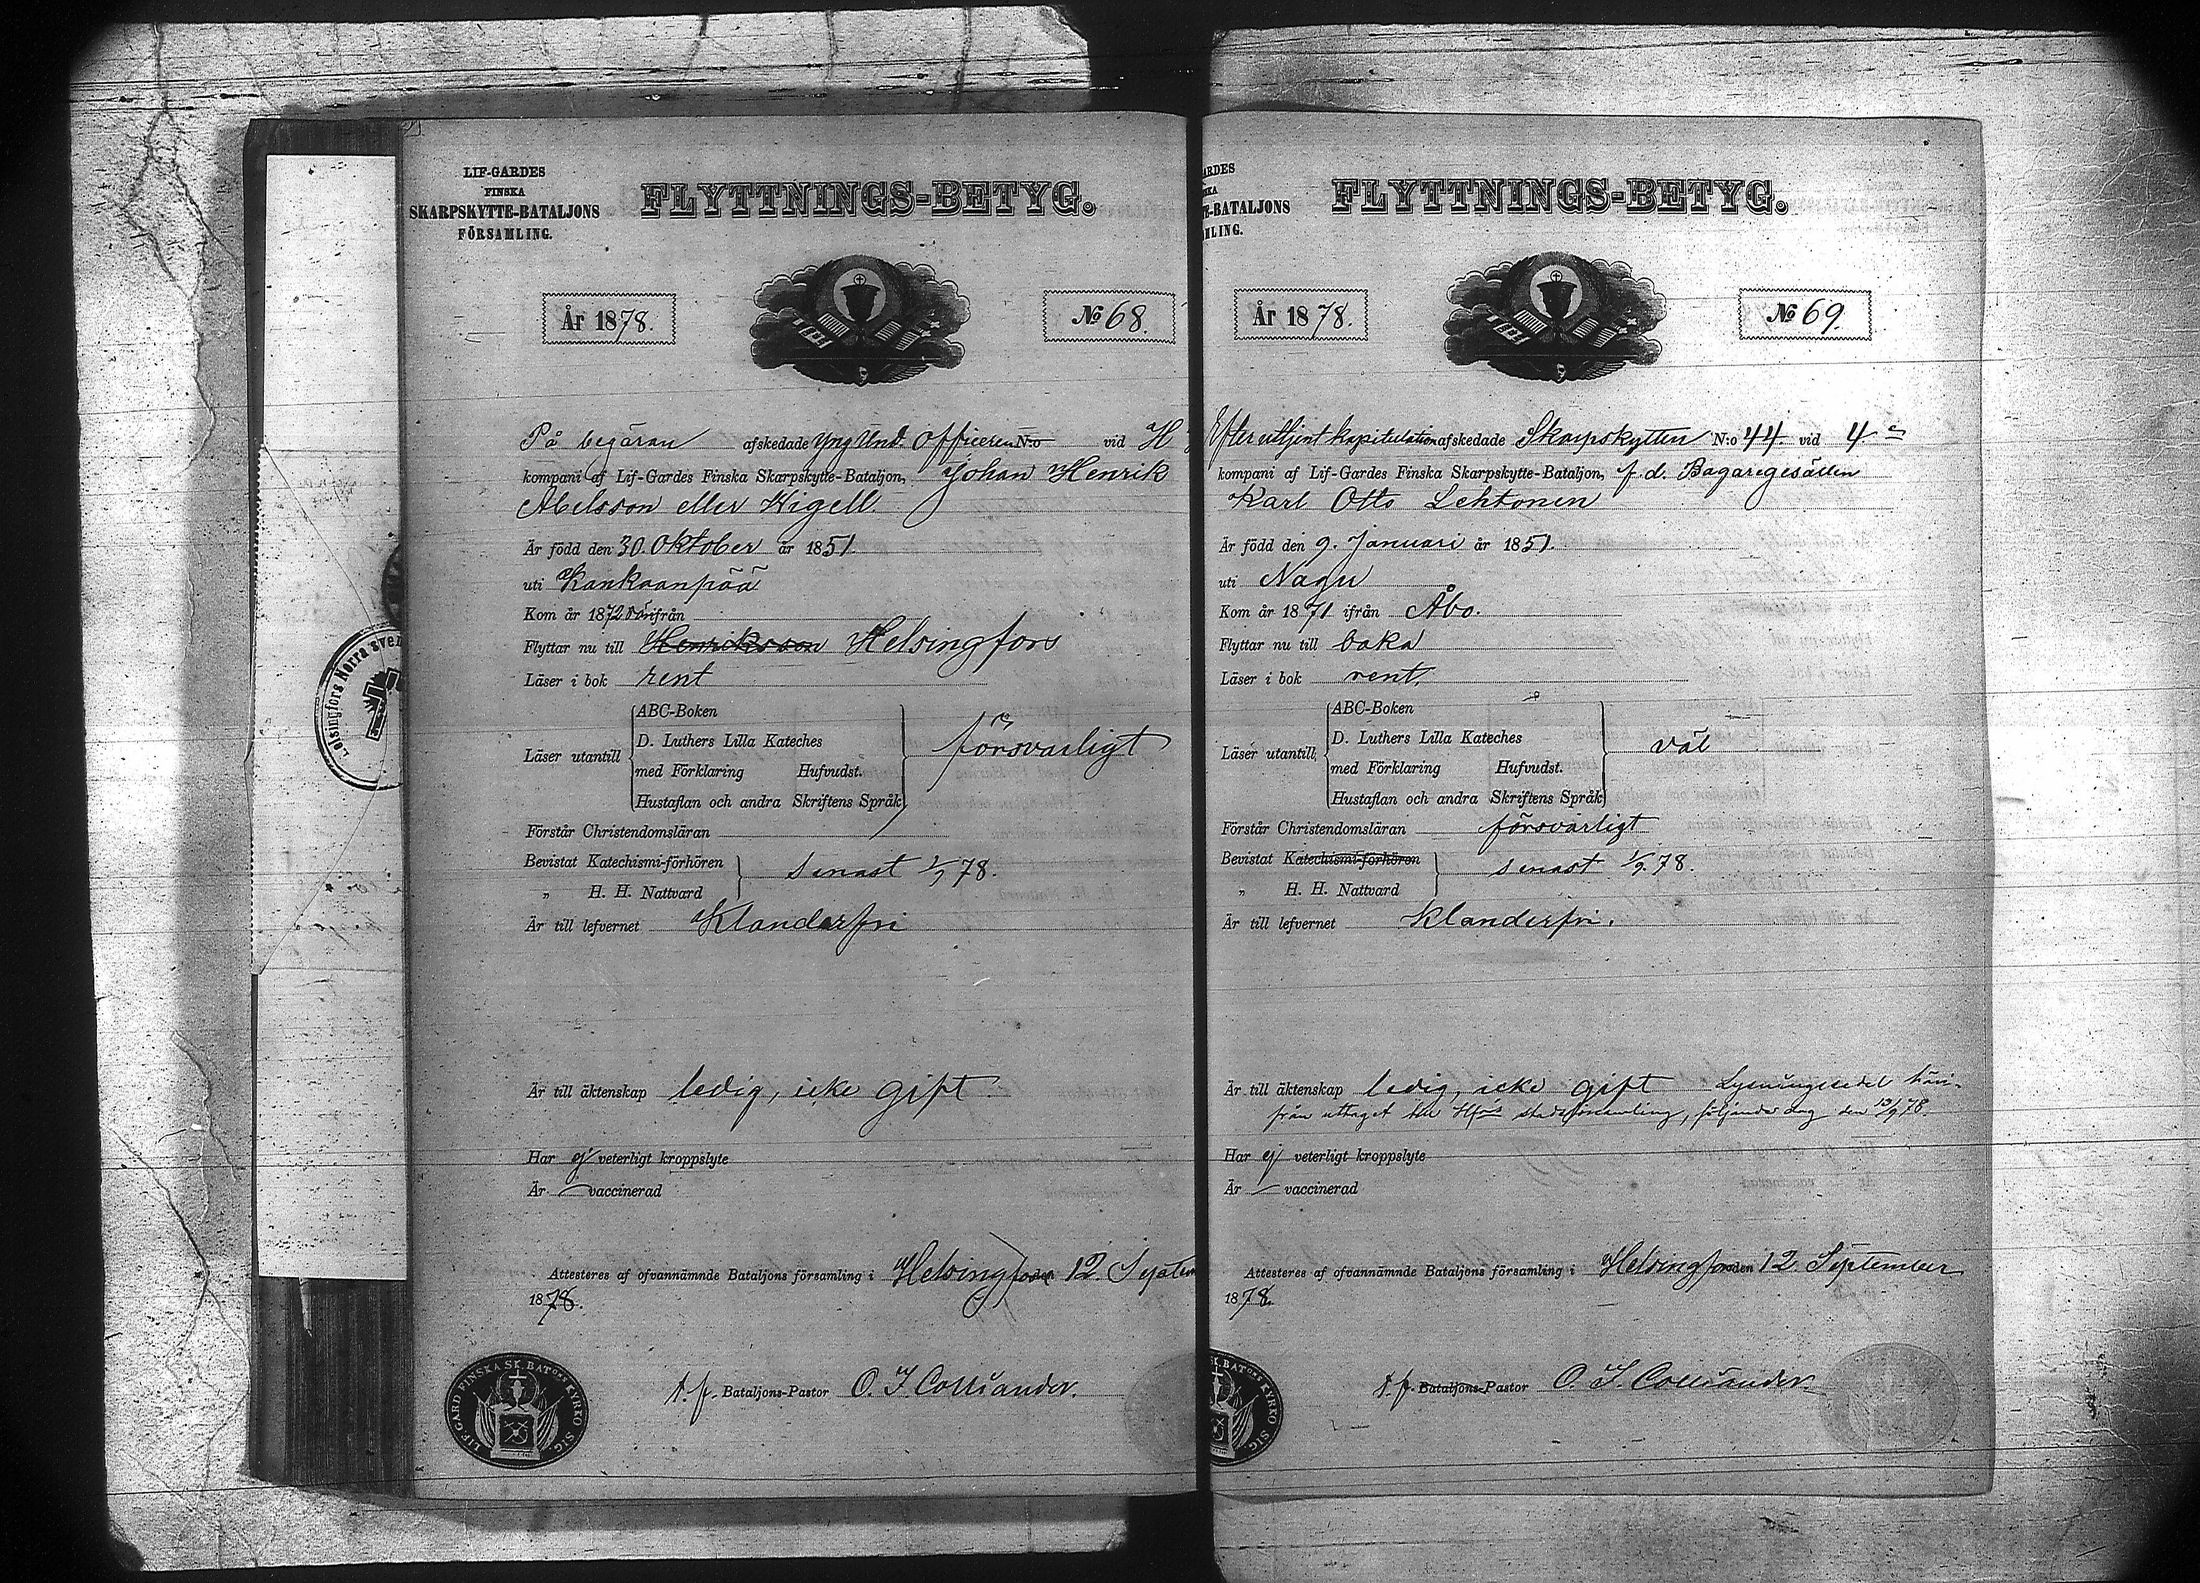 LIF-GARDES
FINSKA
SKARPSKYTTE-BATALJONS
FÖRSAMLING.
FLYTTNINGS-BETYG.
År 1878.
№ 68.
På begäran afskedade Yng Und. Officeren N:o vid
kompani af Lif-Gardes Finska Skarpskytte-Bataljon, Johan Henrik
Abelsson eller Higell
Är född den 30. Oktober år 1851.
uti Kankaanpää
Kom år 1872 ifrån
Flyttar nu till Henriksson Helsingfors
Läser i bok rent
Läser utantill
ABC-Boken
D. Luthers Lilla Kateches
med Förklaring Hufvudst.
Hustaflan och andra Skriftens Språk
försvarligt
Förstår Christendomsläran
Bevistat Katechismi-förhören
„ H. H. Nattvard
senast 1/7 78.
Är till lefvernet Klanderfri
Är till äktenskap ledig, icke gift
Har ej veterligt kroppslyte
Är vaccinerad
Attesteres af ofvannämnde Bataljons församling i Helsingfors den 12. Septem
1878.
t. f. Bataljons-Pastor O. I. Colliander.
LIF GARD FINSKA SK. BATONS KYRKO SIG.
Helsingfors Norra sven
ARDES
SKA
TE-BATALJONS
MLING.
FLYTTNINGS-BETYG.
År 1878.
№ 69.
Efter utljent kapitulation afskedade Skarpskytten N:o 44 vid 4 e
kompani af Lif-Gardes Finska Skarpskytte-Bataljon, f. d. Bagaregesällen
Karl Otto Lehtonen
Är född den 9. Januari år 1851.
uti Nagu
Kom år 1871 ifrån Åbo.
Flyttar nu till
Läser i bok rent.
Läser utantill
ABC-Boken
D. Luthers Lilla Kateches
med Förklaring Hufvudst.
Hustaflan och andra Skriftens Språk
väl
Förstår Christendomsläran försvarligt
Bevistat Katechismi-förhören
„ H. H. Nattvard
senast 1/9 78.
Är till lefvernet Klanderfri.
Är till äktenskap ledig, icke gift Lysningssedel häri-
från uttaget till Hfors stadsförsamling, följande dag den 13/9 78.
Har ej veterligt kroppslyte
Är vaccinerad
Attesteres af ofvannämnde Bataljons församling i Helsingfors den 12 September
1878.
t. f. Bataljons-Pastor O. I. Colliander.
SK. BATONS KYRKO SIG.